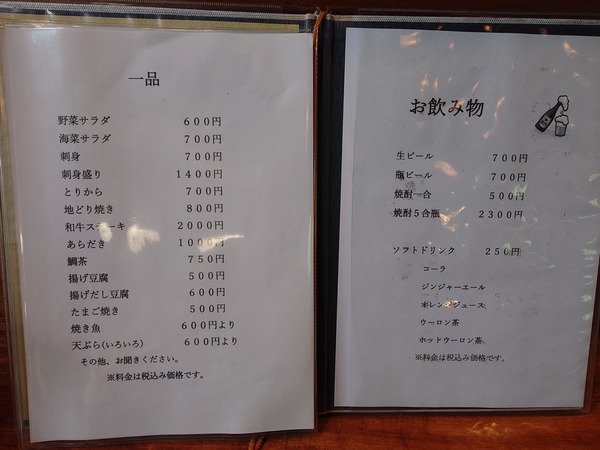 一品
野菜サラダ 600円
海菜サラダ 700円
刺身 700円
刺身盛り 1400円
とりから 700円
地どり焼き 800円
和牛ステーキ 2000円
あらだき 1000円
鯛茶 750円
揚げ豆腐 500円
揚げだし豆腐 600円
たまご焼き 500円
焼き魚 600円より
天ぷら(いろいろ) 600円より
その他、お聞きください。
※料金は税込み価格です。
お飲み物
生ビール 700円
瓶ビール 700円
焼酎一合 500円
焼酎5合瓶 2300円
ソフトドリンク 250円
コーラ
ジンジャーエール
オレンジジュース
ウーロン茶
ホットウーロン茶
※料金は税込み価格です。